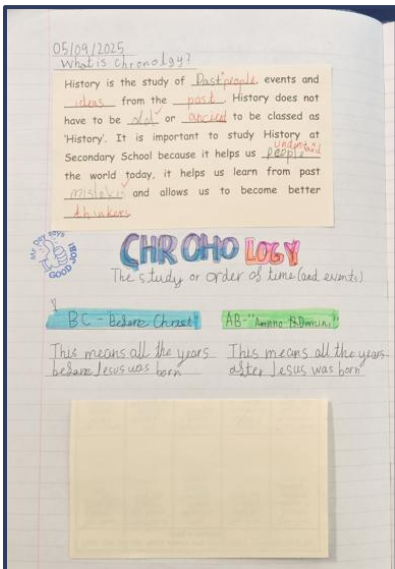 05/09/2025
What is chronolgy?
History is the study of Past people events and
ideas from the past. History does not
have to be old or ancient to be classed as
'History'. It is important to study History at
understand
Secondary School because it helps us people
the world today, it helps us learn from past
mistakes and allows us to become better
thinkers
Mr Day says
GOOD JOB!
CHROHOLOGY
The study or order of time (and events)
BC - "Before Christ"
AB - "Domini"
This means all the years
before Jesus was born
This means all the years
after Jesus was born